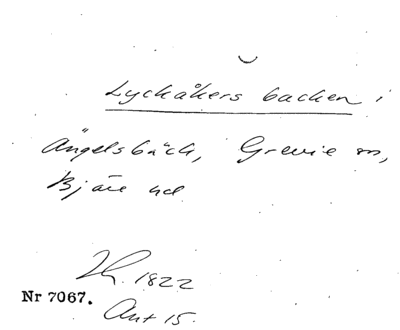 Lyckåkers backen i
Ängelsbäck, Grevie sn,
Bjäre hd
1822
Nr 7067.
Ant 15.